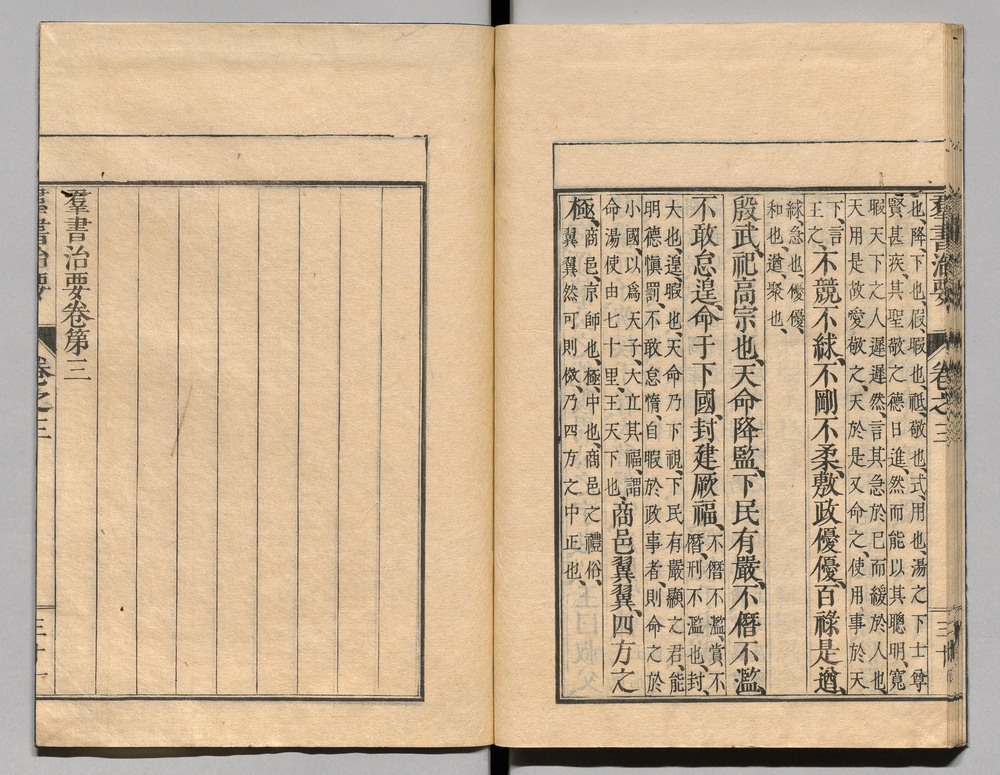 羣書治要 卷之三 三十
也、降、下也、假、暇也、祗、敬也、式、用也、湯之下士尊
賢甚疾、其聖敬之德日進、然而能以其聰明、寬
暇天下之人遲遲然、言其急於己而緩於人也、
天用是故愛敬之、天於是又命之、使用事於天
下、言
王之、
不競不絿、不剛不柔、敷政優優、百祿是遒、
絿、急也、優優、
和也、遒、聚也、
殷武、祀高宗也、天命降監、下民有嚴、不僭不濫、
不敢怠遑、命于下國、封建厥福、
不僭不濫、賞不
僭、刑不濫也、封、
大也、遑、暇也、天命乃下視、下民有嚴顯之君、能
明德愼罰、不敢怠惰、自暇於政事者、則命之於
小國、以爲天子、大立其福、謂
命湯使由七十里、王天下也、
商邑翼翼、四方之
極、
商邑、京師也、極、中也、商邑之禮俗、
翼翼然可則傚、乃四方之中正也、
羣書治要卷第三
羣書治要 卷之三 三十一